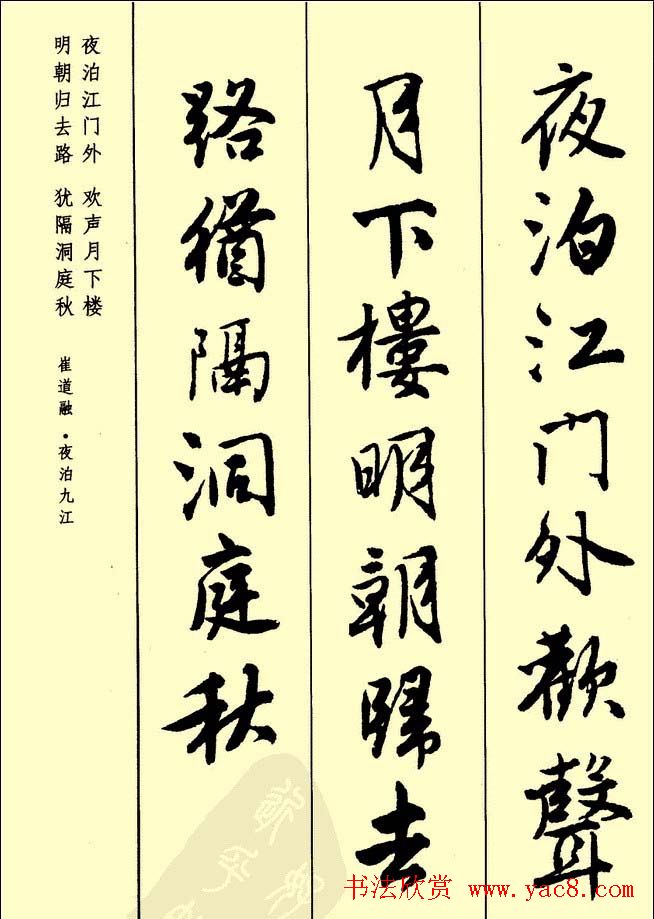 夜泊江门外歡聲
月下樓明朝歸去
路猶隔洞庭秋
夜泊江门外 欢声月下楼
明朝归去路 犹隔洞庭秋
崔道融·夜泊九江
书法欣赏 www.yac8.com